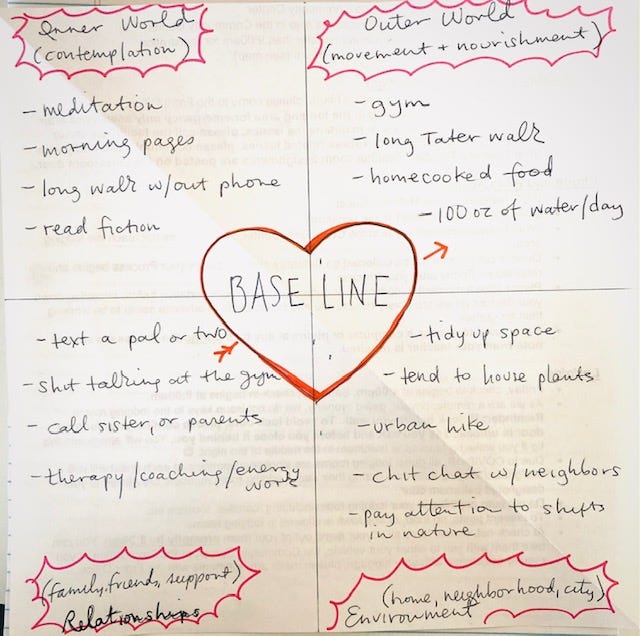 Inner World
(contemplation)
- meditation
- morning pages
- long walk w/out phone
- read fiction
Outer World
(movement + nourishment)
- gym
- long Tater walk
- homecooked food
- 100 oz of water/day
BASE LINE
- text a pal or two
- shit talking at the gym
- call sister, or parents
- therapy/coaching/energy
work
(family, friends, support)
Relationships
- tidy up space
- tend to house plants
- urban hike
- chit chat w/ neighbors
- pay attention to shifts
in nature
(home, neighborhood, city)
Environment